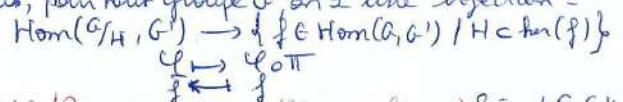 pour tout groupe G' on a une injection :
Hom(G/H, G') → { f ∈ Hom(G, G') / H ⊂ ker(f) }
φ ↦ φ∘π
f̄ ↤ f